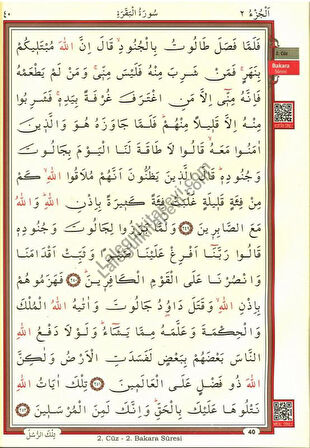 اَلْجُزْءُ ٢ سُورَةُ الْبَقَرَةِ ٤٠
فَلَمَّا فَصَلَ طَالُوتُ بِالْجُنُودِۙ قَالَ اِنَّ اللّٰهَ مُبْتَلٖيكُمْ
بِنَهَرٍۚ فَمَنْ شَرِبَ مِنْهُ فَلَيْسَ مِنّٖيۚ وَمَنْ لَمْ يَطْعَمْهُ
فَاِنَّهُ مِنّٖٓي اِلَّا مَنِ اغْتَرَفَ غُرْفَةً بِيَدِهٖۚ فَشَرِبُوا
مِنْهُ اِلَّا قَلٖيلًا مِنْهُمْؕ فَلَمَّا جَاوَزَهُ هُوَ وَالَّذٖينَ
اٰمَنُوا مَعَهُۙ قَالُوا لَا طَاقَةَ لَنَا الْيَوْمَ بِجَالُوتَ
وَجُنُودِهٖؕ قَالَ الَّذٖينَ يَظُنُّونَ اَنَّهُمْ مُلَاقُوا اللّٰهِۙ كَمْ
مِنْ فِئَةٍ قَلٖيلَةٍ غَلَبَتْ فِئَةً كَثٖيرَةً بِاِذْنِ اللّٰهِؕ وَاللّٰهُ
مَعَ الصَّابِرٖينَ ﴿٢٤٩﴾ وَلَمَّا بَرَزُوا لِجَالُوتَ وَجُنُودِهٖ
قَالُوا رَبَّنَٓا اَفْرِغْ عَلَيْنَا صَبْرًا وَثَبِّتْ اَقْدَامَنَا
وَانْصُرْنَا عَلَى الْقَوْمِ الْكَافِرٖينَؕ ﴿٢٥٠﴾ فَهَزَمُوهُمْ
بِاِذْنِ اللّٰهِ وَقَتَلَ دَاوُدُ جَالُوتَ وَاٰتٰيهُ اللّٰهُ الْمُلْكَ
وَالْحِكْمَةَ وَعَلَّمَهُ مِمَّا يَشَٓاءُؕ وَلَوْلَا دَفْعُ اللّٰهِ
النَّاسَ بَعْضَهُمْ بِبَعْضٍ لَفَسَدَتِ الْاَرْضُ وَلٰكِنَّ
اللّٰهَ ذُو فَضْلٍ عَلَى الْعَالَمٖينَ ﴿٢٥١﴾ تِلْكَ اٰيَاتُ اللّٰهِ
نَتْلُوهَا عَلَيْكَ بِالْحَقِّؕ وَاِنَّكَ لَمِنَ الْمُرْسَلٖينَ ﴿٢٥٢﴾
2. Cüz
Bakara
Sûresi
تِلْكَ الرُّسُلُ
40
2. Cüz - 2. Bakara Sûresi